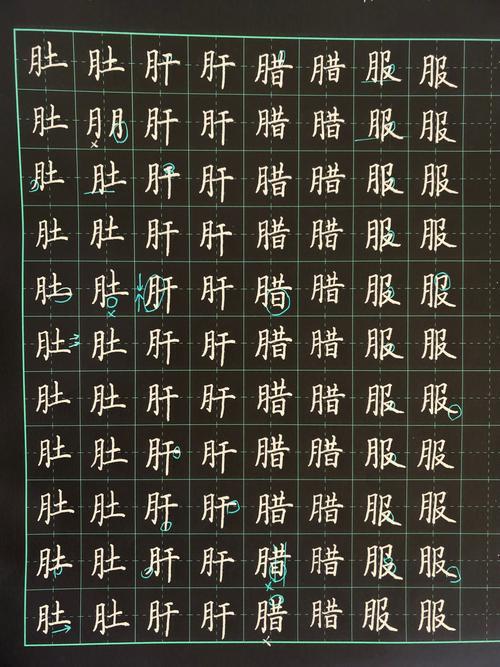 肚肚肝肝腊腊服服
肚朋肝肝腊腊服服
肚肚肝肝腊腊服服
肚肚肝肝腊腊服服
肚肚肝肝腊腊服服
肚肚肝肝腊腊服服
肚肚肝肝腊腊服服
肚肚肝肝腊腊服服
肚肚肝肝腊腊服服
肚肚肝肝腊腊服服
肚肚肝肝腊腊服服